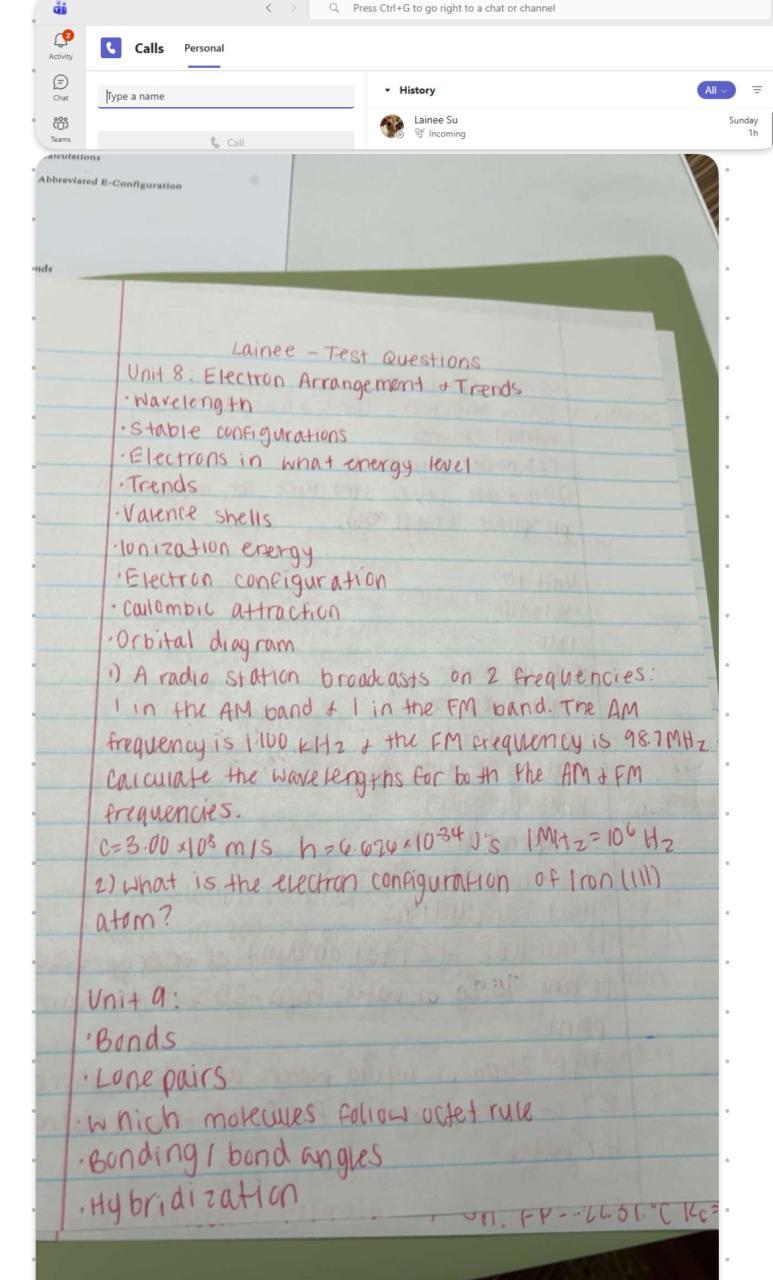 Press Ctrl+G to go right to a chat or channel
2
Activity
Calls Personal
Chat
Type a name
History
All
Teams
Call
Lainee Su
Incoming
Sunday
1h
Abbreviated E-Configuration
Lainee - Test Questions
Unit 8: Electron Arrangement & Trends
· Wavelength
· Stable configurations
· Electrons in what energy level
· Trends
· Valence shells
· Ionization energy
· Electron configuration
· Coulombic attraction
· Orbital diagram
1) A radio station broadcasts on 2 frequencies:
1 in the AM band & 1 in the FM band. The AM
frequency is 1100 kHz & the FM frequency is 98.7 MHz
Calculate the wavelengths for both the AM & FM
frequencies.
C=3.00 x10⁸ m/s h=6.626x10⁻³⁴ J·s 1MHz=10⁶ Hz
2) What is the electron configuration of Iron (III)
atom?
Unit 9:
· Bonds
· Lone pairs
· Which molecules follow octet rule
· Bonding / bond angles
· Hybridization